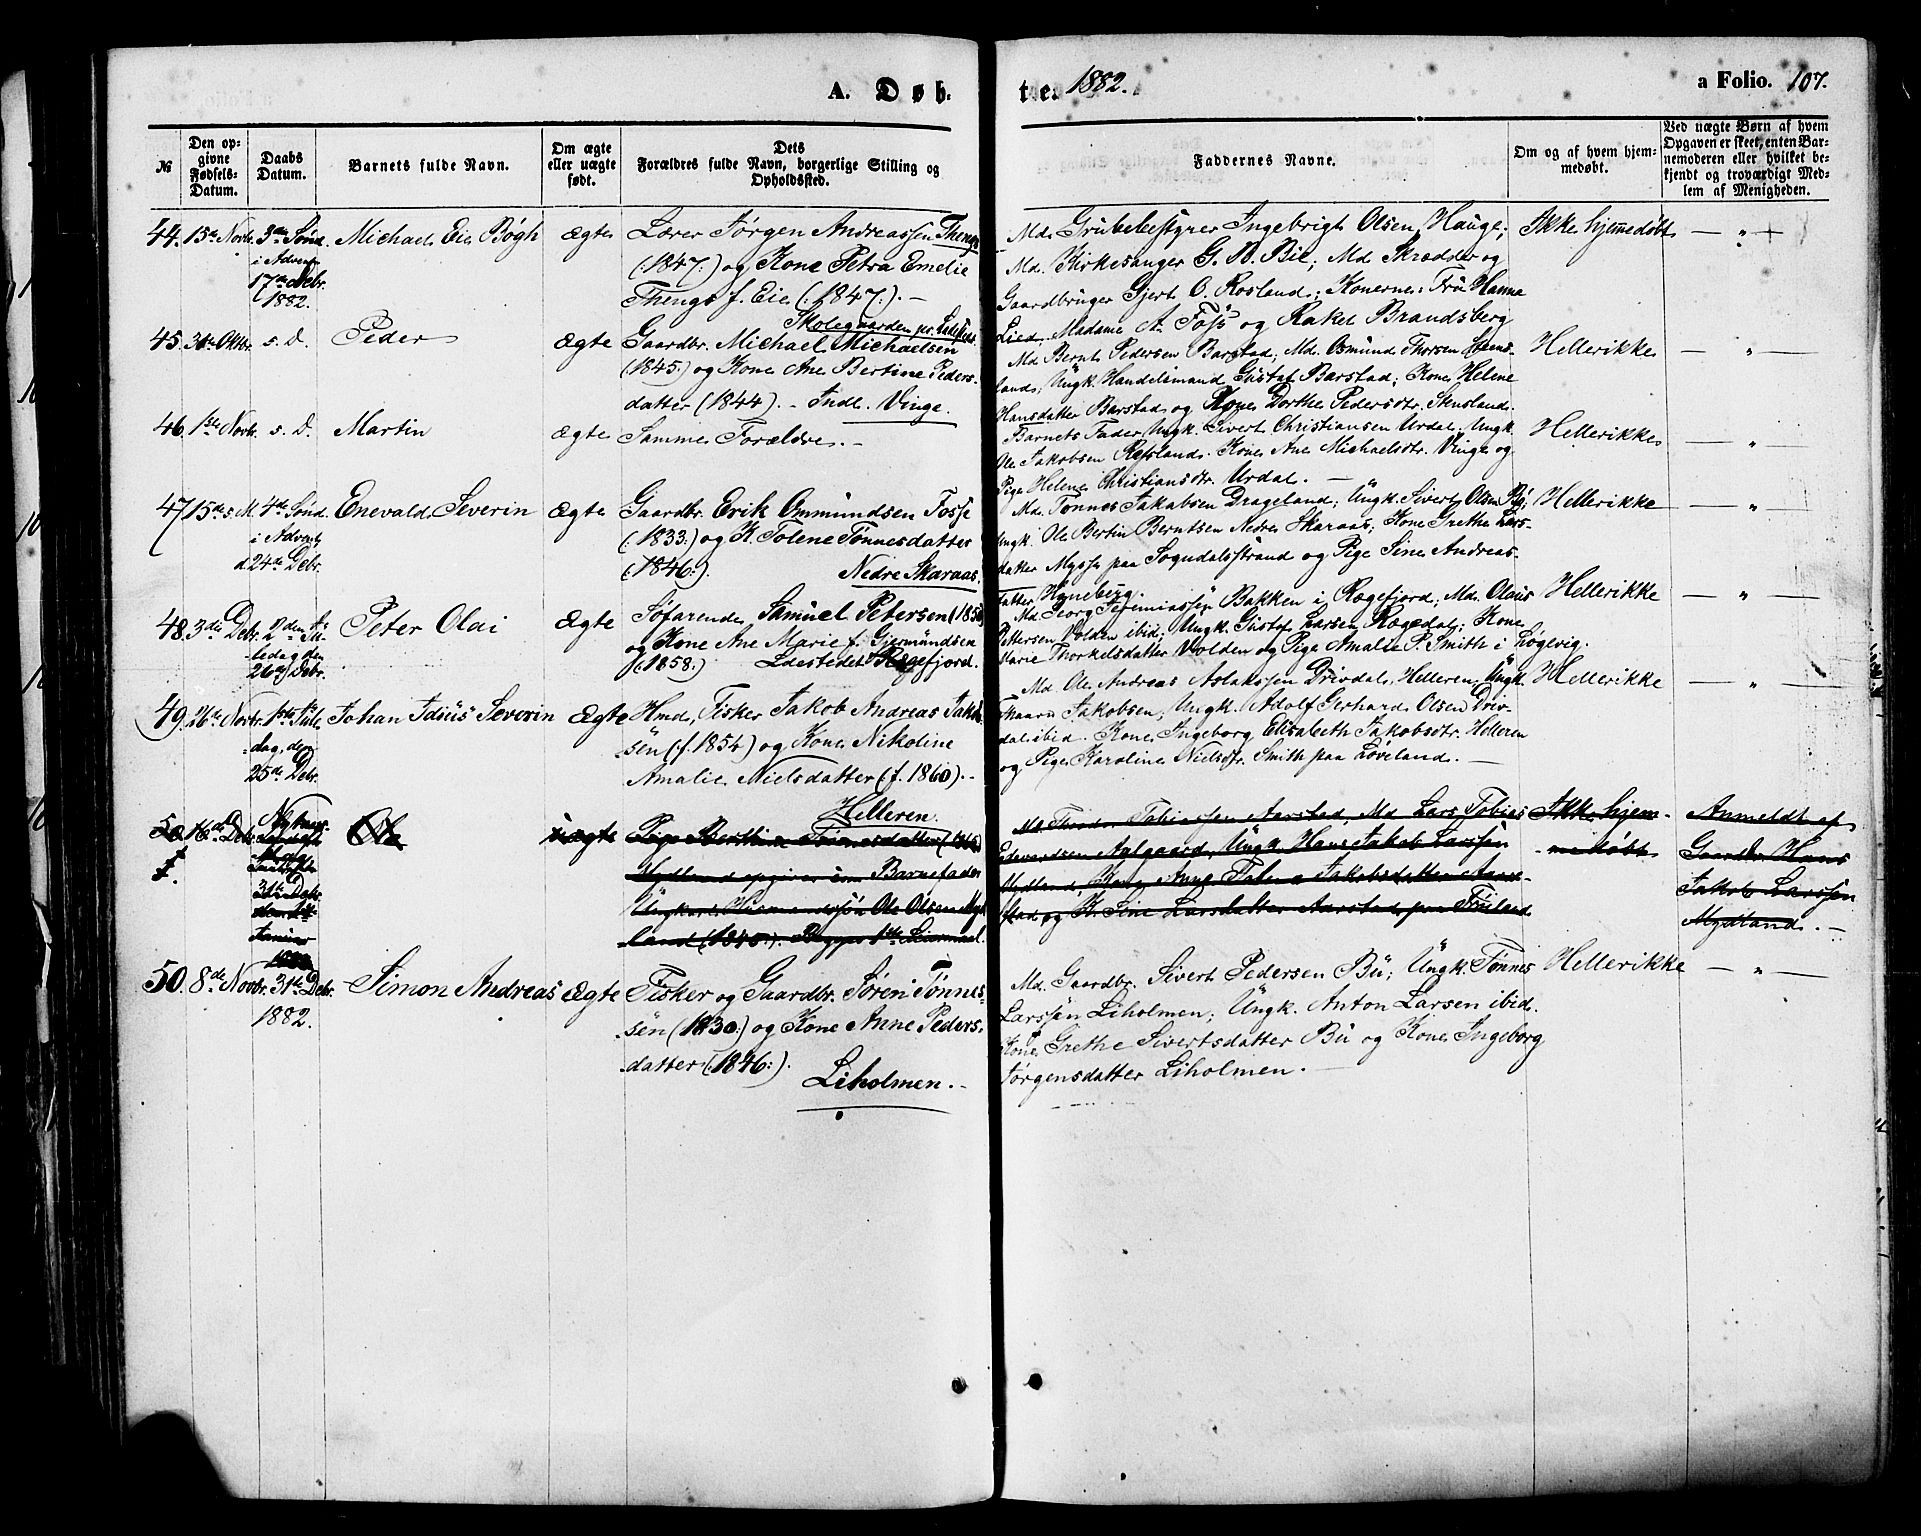 A. Døb-
te. 1882.
a Folio. 107.
№
Den op-
givne
Fødsels-
Datum.
Daabs
Datum.
Barnets fulde Navn.
Om ægte
eller uægte
født.
Dets
Forældres fulde Navn, borgerlige Stilling og
Opholdssted.
Faddernes Navne.
Om og af hvem hjem-
medøbt.
Ved uægte Børn af hvem
Opgaven er skeet, enten Bar-
nemoderen eller hvilket be-
kjendt og troværdigt Med-
lem af Menigheden.
44. 15de Novbr. 3die Sønd.
i Advent
17de Debr.
1882.
Michael Eie Bøgh
ægte
Lærer Jørgen Andreassen Thengs
(1847:) og Kone Petra Emelie
Thengs f. Eie (:1847:). —
Skolegaarden pr. Ladestedet
Md. Grubebestyrer Ingebrigt Olsen Hauge;
Md. Kirkesanger G. B. Bie; Md Skrædder og
Gaardbruger Gjert O. Rosland; Konerne: Fru Hanne
Lied, Madame A. Foss og Rakel Brandsberg
Ikke hjemmedøbt
— „ —
45. 31te Oktbr. s. D.
Peder
ægte
Gaardbr. Michael Michaelsen
(1845:) og Kone Ane Bertine Peders-
datter (1844). - Indl. Vinge.
Md Bernt Pedersen Barstad; Md. Osmund Thorsen Stens-
land; Ungk. Handelsmand Gustaf Barstad; Kone Helene
Hansdatter Barstad og Kone Dorthe Pedersdtr. Stensland.
Hellerikke
— „ —
46. 1ste Novbr. s. D.
Martin
ægte
Samme Forældre. -
Barnets Fader, Ungk. Sivert Christiansen Urdal, Ungk.
Ole Jakobsen Refsland. Kone Ane Michaelsdtr. Vinge og
Pige Helene Christiansdtr. Urdal. —
Hellerikke
— „ —
47. 15de s. M. 4de Sønd.
i Advent
d 24de Debr.
Enevald Severin
ægte
Gaardbr. Erik Ommundsen Fosse
(:1833:) og K. Tolene Tønnesdatter
(1846:).
Nedre Skaraas.
Md. Tønnes Jakobsen Drageland; Ungk. Sivert Olsen Bø;
Ungk. Ole Bertin Berntsen Nedre Skaraas; Kone Grethe Lars-
datter Mysse paa Sogndalsstrand og Pige Sine Andreas-
datter Hyneberg.
Hellerikke
— „ —
48. 3die Debr. 2den Ju-
ledag den
26de Debr.
Peter Olai
ægte
Søfarende Samuel Petersen (1856
og Kone Ane Marie f. Gjermundsen
(1858:) Ldestedet Rægefjord.
Md Georg Jeremiassen Bakken i Rægefjord; Md. Olaus
Pettersen Volden ibid; Ungk. Gustaf Larsen Rægedal; Kone
Marie Thorkelsdatter Volden og Pige Amalie P. Smith i Løgevig.
Hellerikke
— „ —
49. 26de Novbr. 1ste Jule-
dag, den
25de Debr.
Johan Idius Severin
Ægte
Hmd, Fisker Jakob Andreas Jakob-
sen (f. 1854) og Kone Nikoline
Amalie Nielsdatter (f. 1860). -
Helleren.
Md Ole Andreas Aslaksen Drivdal, Helleren; Ungk.
Jakobsen; Ungk. Adolf Gerhard Olsen Driv-
dal ibid. Kone Ingeborg Elisabeth Jakobsdtr. Helleren
og Pige Karoline Nielsdtr. Smith paa Løveland. —
Hellerikke
— „ —
50. 16de Debr.
31te Debr.
Ole
uægte
Pige Berthine (1845)
Mydland opgiver som Barnefader
Ungkarl Husmandssøn Ole Olsen Myd-
land (1845:).
Md Tobiassen Aarstad, Md Lars Tobias
Edvardsen Aalgaard, Ungk. Hans Jakob Larssen
Mydland, Kone Anne Jakobsdatter Aar-
stad og K. Sine Larsdatter Aarstad paa
Ikke hjem-
medøbt
Anmeldt af
Gaardbr Hans
Jakob Larssen
Mydland. —
50. 8de Novbr. 31te Debr.
1882.
Simon Andreas
Ægte
Fisker og Gaardbr. Søren Tønnes-
sen (1830:) og Kone Anne Peders-
datter (:1846:).
Liholmen. -
Md. Gaardbr. Sivert Pedersen Bu; Ungk. Tønnes
Larssen Liholmen; Ungk. Anton Larsen ibid.
Kone Grethe Sivertsdatter Bu og Kone Ingeborg
Jørgensdatter Liholmen. —
Hellerikke
— „ —